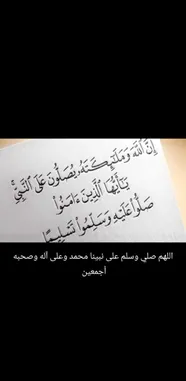 إِنَّ ٱللَّهَ وَمَلَٰٓئِكَتَهُۥ يُصَلُّونَ عَلَى ٱلنَّبِيِّ
يَٰٓأَيُّهَا ٱلَّذِينَ ءَامَنُوا۟
صَلُّوا۟ عَلَيْهِ وَسَلِّمُوا۟ تَسْلِيمًا
اللهم صلي وسلم على نبينا محمد وعلى آله وصحبه
أجمعين